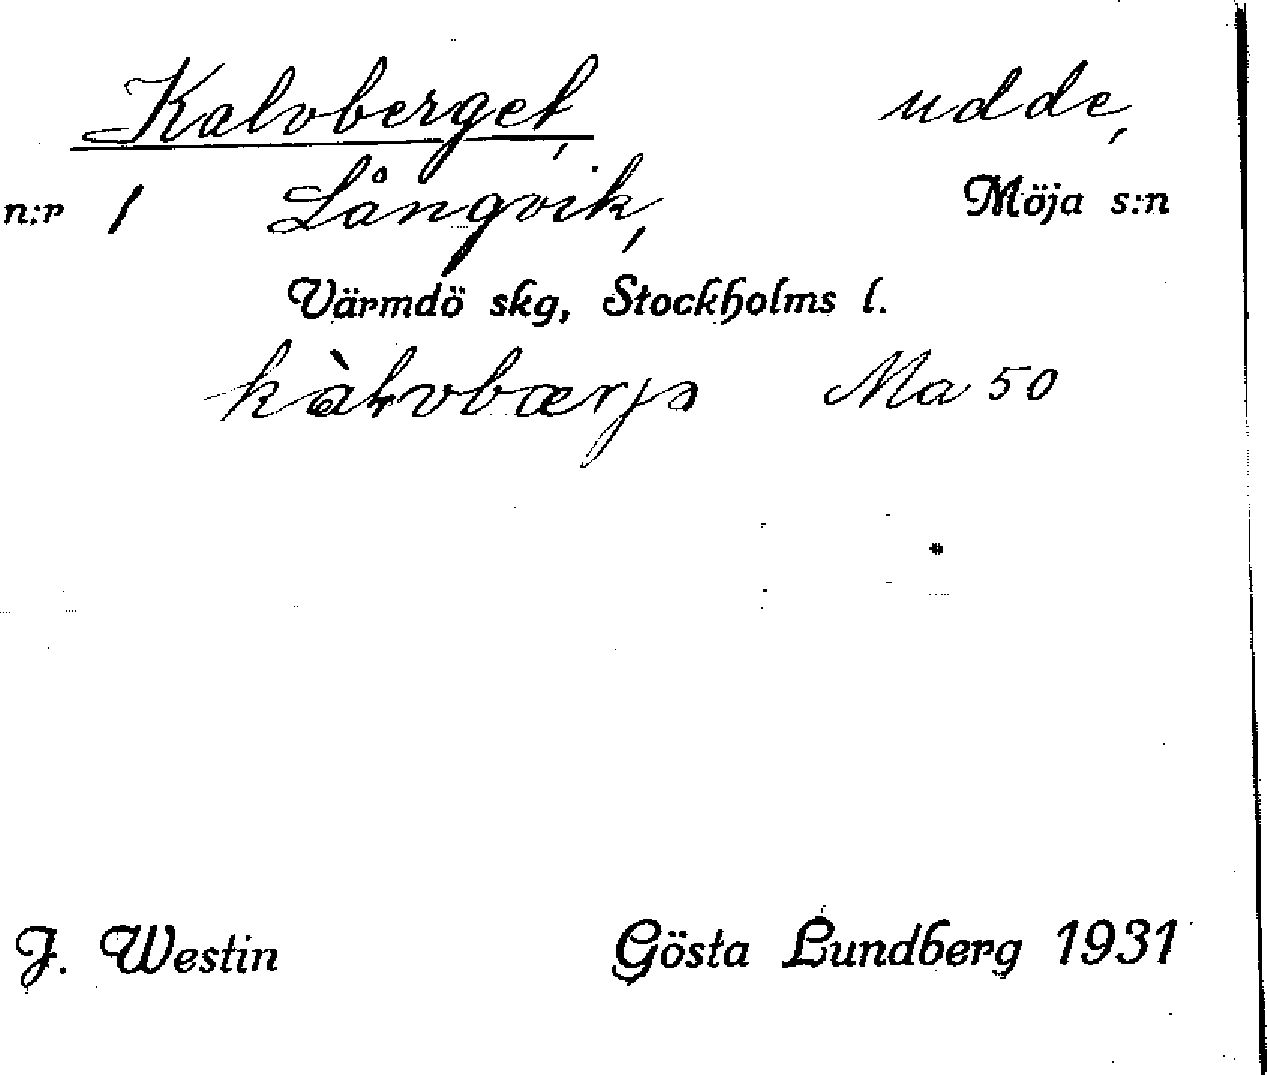 Kalvberget, udde,
n:r 1 Långvik, Möja s:n
Värmdö skg, Stockholms l.
Ma 50
J. Westin Gösta Lundberg 1931